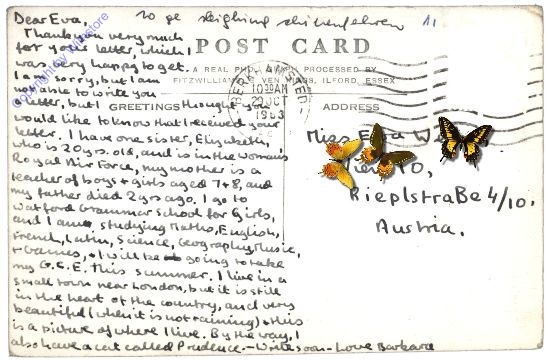 Dear Eva,
Thank you very much
for your letter, which I
was very happy to get.
I am sorry, but I am
not able to write you
a letter, but I thought you
would like to know that I received your
letter. I have one sister, Elizabeth,
who is 20 yrs. old, and is in the Woman's
Royal Air Force, my mother is a
teacher of boys + girls aged 7+8, and
my father died 2 yrs ago. I go to
Watford Grammar School for Girls,
and I am studying Maths, English,
French, Latin, Science, Geography, Music,
+ Games, I will be going to take
my G.C.E. this summer. I live in a
small town near London, but it is still
in the heart of the country, and very
beautiful (when it is not raining) + this
is a picture of where I live. By the way, I
also have a cat called Prudence. - Write soon - Love Barbara
POST CARD
A REAL PROCESSED BY
ILFORD, ESSEX
GREETINGS
ADDRESS
10 30 AM
22 OCT
1963
Miss
Rieplstraße 4/10.
Austria.